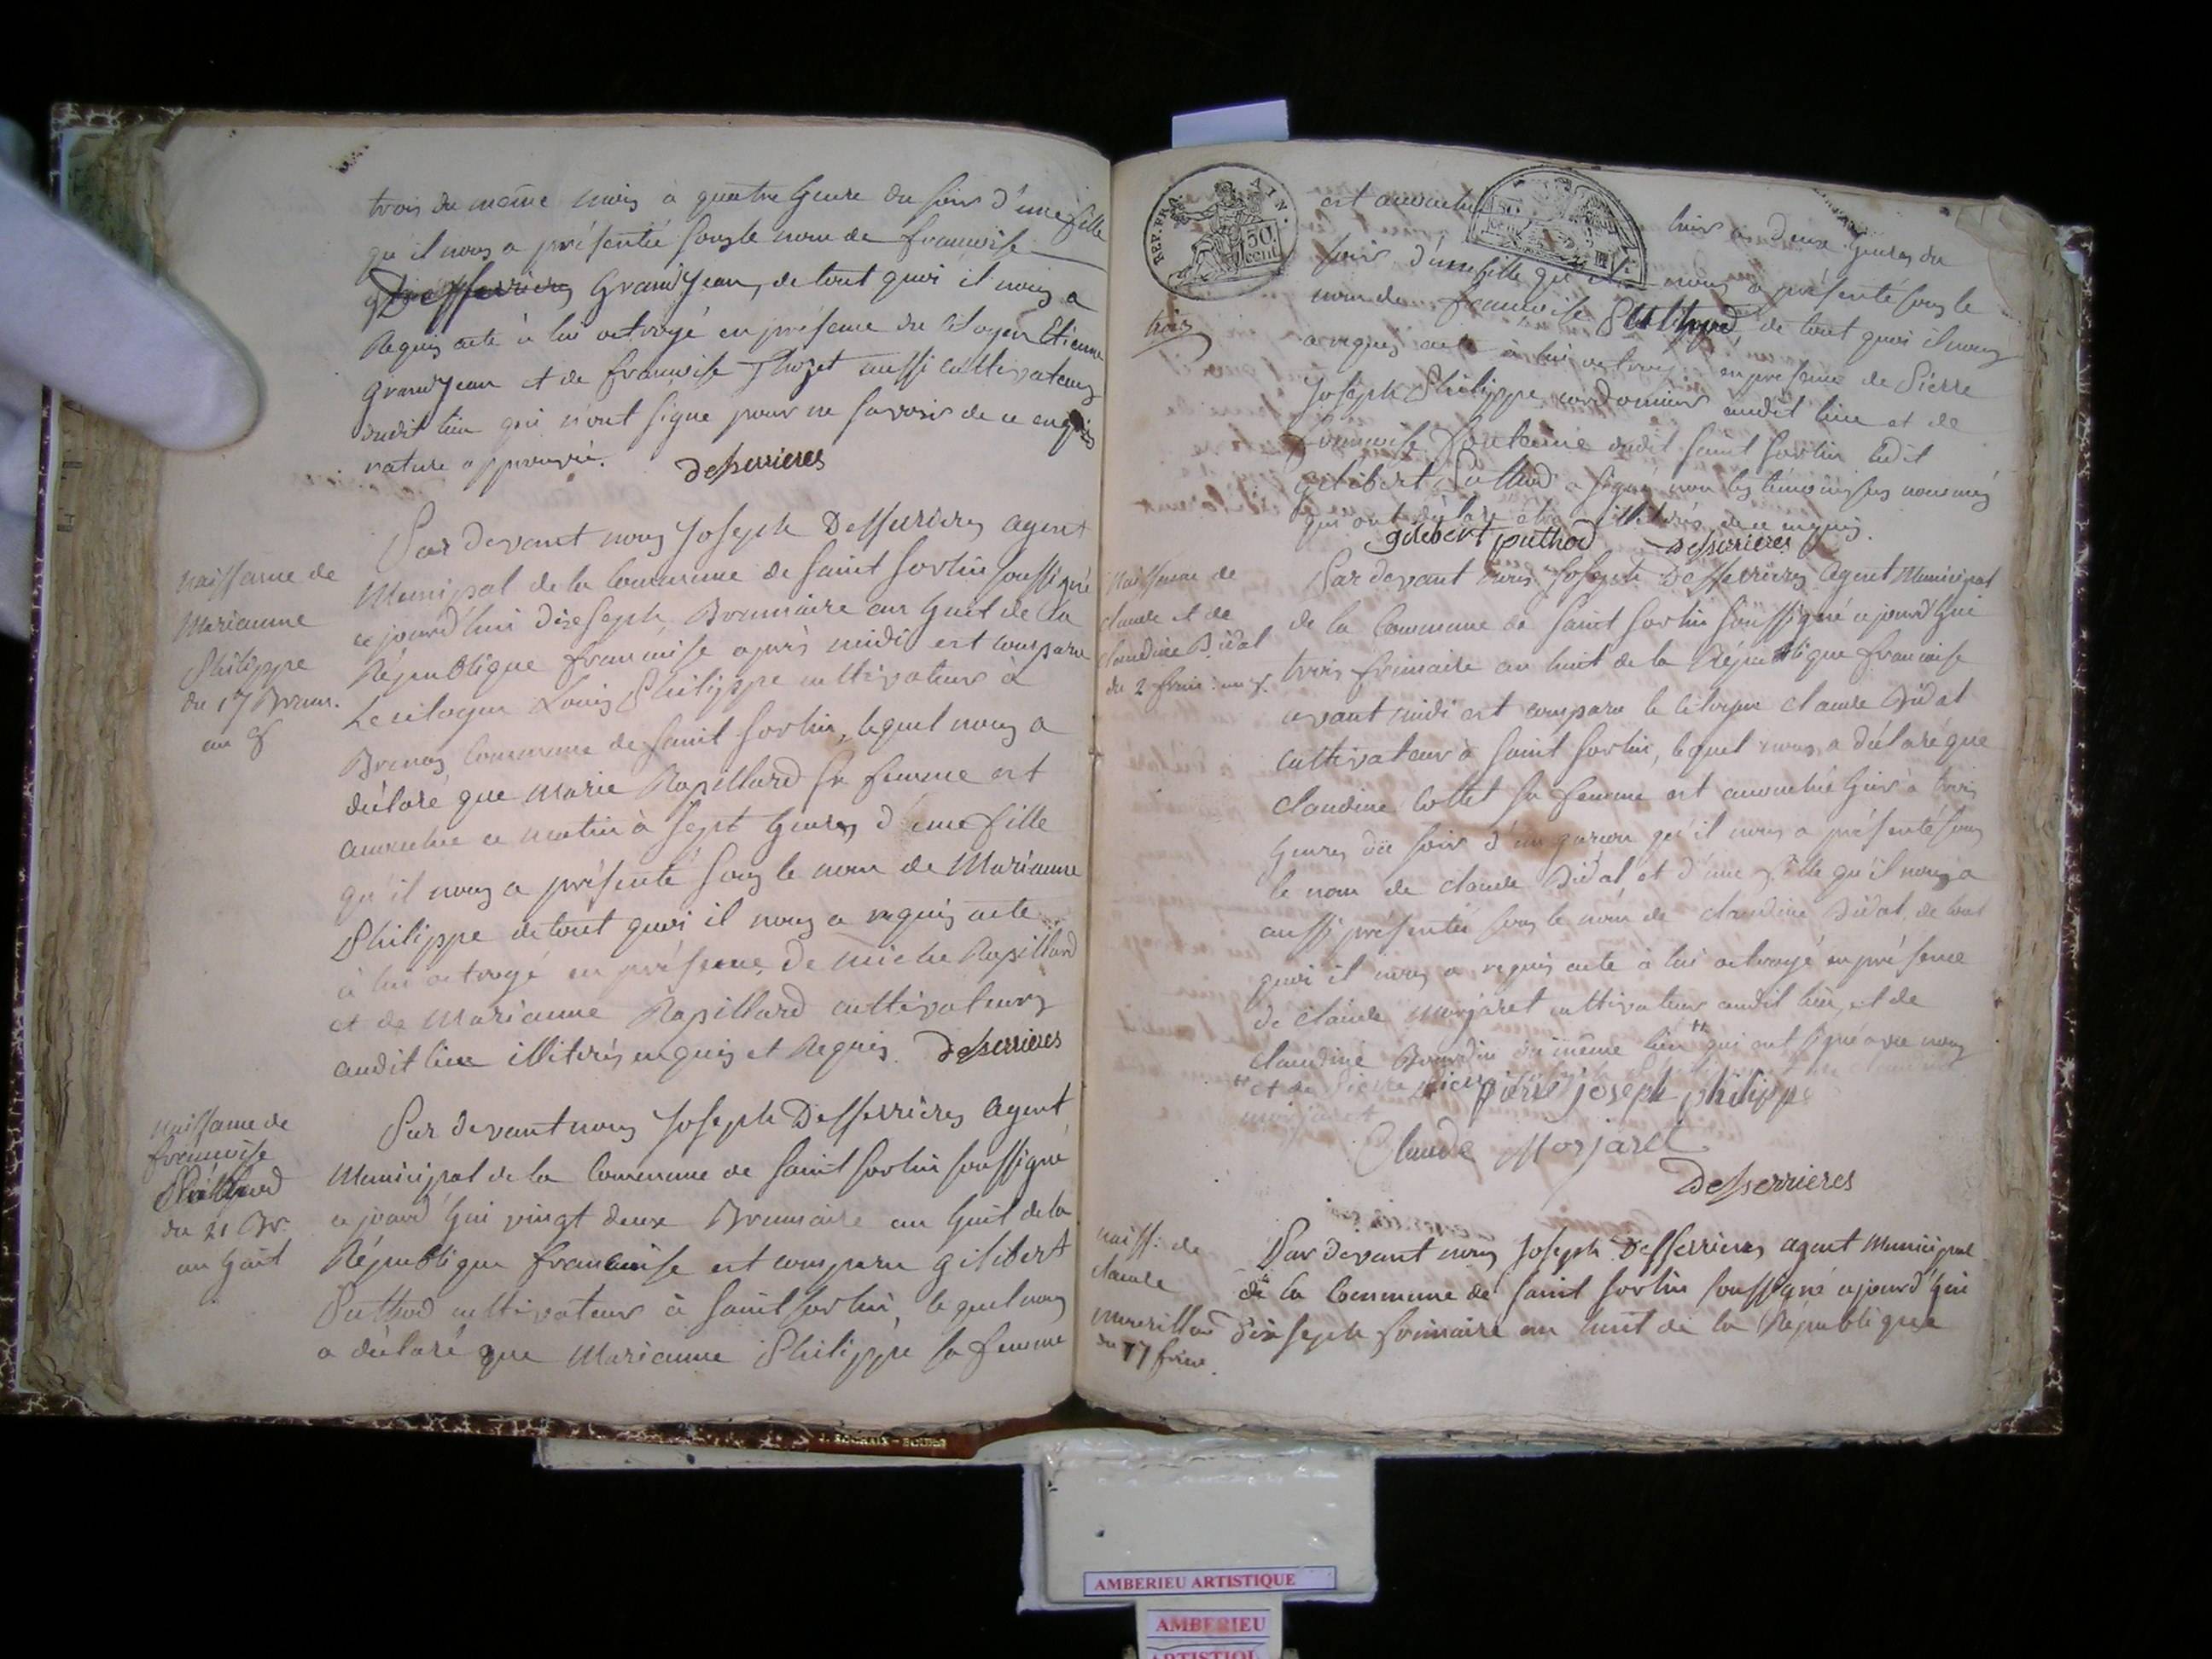 trois du même mois à quatre heure du soir d'une fille
qu'il nous a présentée sous le nom de francoise
Desserrieres GrandJean, de tout quoi il nous a
Requis acte à lui octroyé en présence du Citoyen Etienne
GrandJean et de francoise aussi cultivateurs
dudit lieu qui n'ont signé pour ne savoir de ce enquis
rature approuvée.
desserrieres
naissance de
Marianne
Philippe
du 17 Brum.
an 8
Par devant nous Joseph Desserrieres agent
Municipal de la Commune de saint sorlin soussigné
cejourd'hui dixseph Brumaire an huit de la
République francoise après midi est comparu
Le citoyen Louis Philippe cultivateur à
Commune de saint sorlin, lequel nous a
déclaré que Marie Rapillard sa femme est
accouchée ce matin à sept heures d'une fille
qu'il nous a présenté sous le nom de Marianne
Philippe de tout quoi il nous a requis acte
à lui octroyé en présence de miche Rapillard
et de Marianne Rapillard cultivateurs
audit lieu illiterés enquis et Requis. desserrieres
naissance de
francoise
du 21 Br.
an huit
Par devant nous Joseph Desserrieres agent
Municipal de la Commune de saint sorlin soussigné
cejourd'hui vingt deux Brumaire an huit de la
République francoise est comparu gilibert
Puthod cultivateur à saint sorlin, lequel nous
a déclaré que Marianne Philippe sa femme
REP. FRA. AIN.
50 cent
est accouchée hier à deux heures du
soir d'une fille qu'il nous a présenté sous le
nom de francoise Puthod, de tout quoi il nous
trois
a requis acte à lui octroyé en présence de Pierre
Joseph Philippe cordonnier audit lieu et de
francoise fontaine dudit saint sorlin ledit
gilibert Puthod a signé non les témoins sus nommés
qui ont déclaré etre illiterés de ce enquis.
gilebert puthod desserrieres
Naissance de
claude et de
claudine Bidal
du 2 frim: an 8.
Par devant nous Joseph Desserrieres agent Municipal
de la Commune de saint sorlin soussigné cejourd'hui
trois frimaire an huit de la République francoise
avant midi est comparu le citoyen claude Bidal
cultivateur à saint sorlin, lequel nous a déclaré que
claudine Collet sa femme est accouchée hier à trois
heures du soir d'un garcon qu'il nous a présenté sous
le nom de claude Bidal et d'une fille qu'il nous a
aussi présentée sous le nom de claudine Bidal, de tout
quoi il nous a requis acte à lui octroyé en présence
de claude morjaret cultivateur audit lieu, et de
claudine Bourdin du même lieu qui ont signé avec nous
et de Pierre
pierre joseph philippe
morjaret
Claude Morjaret
desserrieres
naiss: de
claude
du 17 frim.
Par devant nous Joseph Desserrieres agent Municipal
de la Commune de saint sorlin soussigné cejourd'hui
dixseph frimaire an huit de la République
AMBERIEU ARTISTIQUE
AMBERIEU
ARTISTIQUE